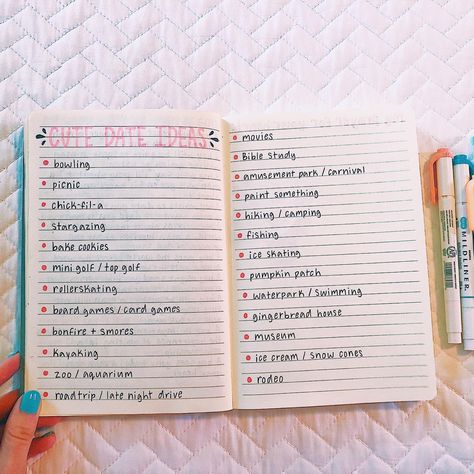 CUTE DATE IDEAS
bowling
picnic
chick-fil-a
stargazing
bake cookies
mini golf / top golf
rollerskating
board games / card games
bonfire + smores
kayaking
zoo / aquarium
roadtrip / late night drive
movies
Bible Study
amusement park / carnival
paint something
hiking / camping
fishing
ice skating
pumpkin patch
waterpark / swimming
gingerbread house
museum
ice cream / snow cones
rodeo
MILDLINER